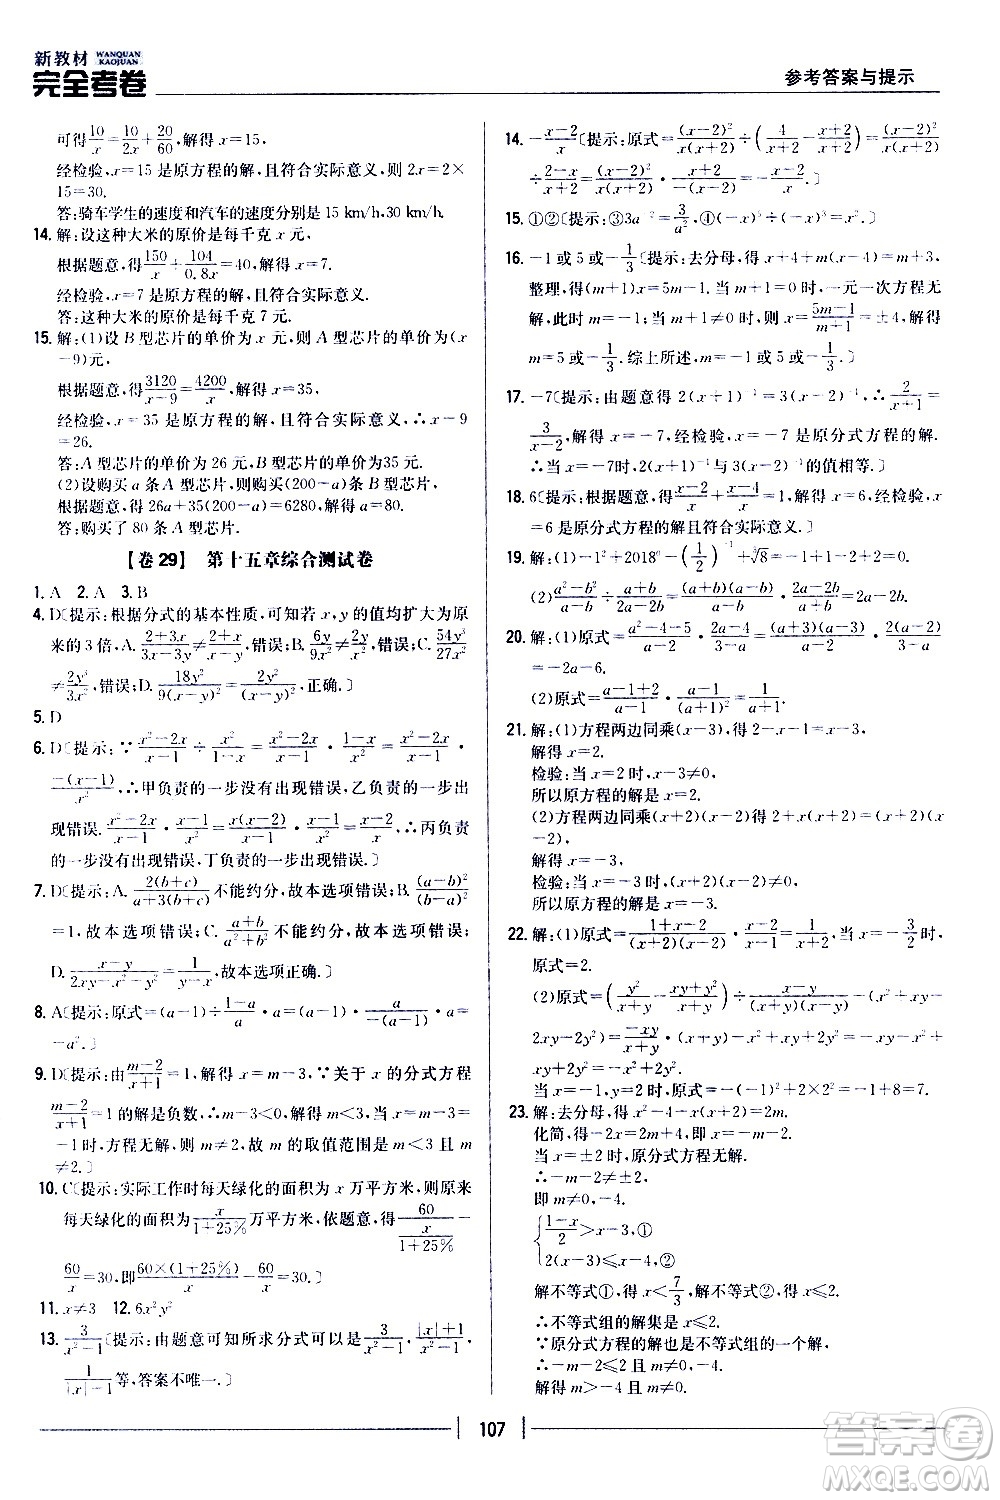 新教材 WANQUAN KAOJUAN
完全考卷
参考答案与提示
可得10/x=10/2x+20/60,解得 x=15.
经检验,x=15 是原方程的解,且符合实际意义,则 2x=2×
15=30.
答:骑车学生的速度和汽车的速度分别是 15 km/h,30 km/h.
14. 解:设这种大米的原价是每千克 x 元,
根据题意,得150/x+104/0.8x=40,解得 x=7.
经检验,x=7 是原方程的解,且符合实际意义.
答:这种大米的原价是每千克 7 元.
15. 解:(1)设 B 型芯片的单价为 x 元,则 A 型芯片的单价为(x
-9)元.
根据题意,得3120/(x-9)=4200/x,解得 x=35,
经检验,x=35 是原方程的解,且符合实际意义,∴x-9
=26.
答:A 型芯片的单价为 26 元,B 型芯片的单价为 35 元.
(2)设购买 a 条 A 型芯片,则购买(200-a)条 B 型芯片,
根据题意,得 26a+35(200-a)=6280,解得 a=80.
答:购买了 80 条 A 型芯片.
【卷 29】 第十五章综合测试卷
1. A 2. A 3. B
4. D〔提示:根据分式的基本性质,可知若 x,y 的值均扩大为原
来的 3 倍,A.(2+3x)/(3x-3y)≠(2+x)/(x-y),错误;B.6y/9x²≠2y/x²,错误;C.54y³/27x²
≠2y³/3x²,错误;D.18y²/9(x-y)²=2y²/(x-y)²,正确.〕
5. D
6. D〔提示:∵(x²-2x)/(x-1)÷x²/(1-x)=(x²-2x)/(x-1)·(1-x)/x²=(x²-2x)/(x-1)·
-(x-1)/x²,∴甲负责的一步没有出现错误,乙负责的一步出
现错误.(x²-2x)/(x-1)·(x-1)/x²=x(x-2)/(x-1)·(x-1)/x²,∴丙负责
的一步没有出现错误,丁负责的一步出现错误.〕
7. D〔提示:A.2(b+c)/(a+3(b+c))不能约分,故本选项错误;B.(a-b)²/(b-a)²
=1,故本选项错误;C.(a+b)/(a²+b²)不能约分,故本选项错误;
D.(x-y)/(2xy-x²-y²)=1/(y-x),故本选项正确.〕
8. A〔提示:原式=(a-1)÷(1-a)/a=(a-1)·a/(1-a)·a=
-a².〕
9. D〔提示:由(m-2)/(x+1)=1,解得 x=m-3,∵关于 x 的分式方程
(m-2)/(x+1)=1的解是负数,∴m-3<0,解得 m<3,当 x=m-3=
-1时,方程无解,则 m≠2,故 m 的取值范围是 m<3 且 m
≠2.〕
10. C〔提示:实际工作时每天绿化的面积为 x 万平方米,则原来
每天绿化的面积为x/(1+25%)万平方米,依题意,得60/(x/(1+25%))-
60/x=30,即60×(1+25%)/x-60/x=30.〕
11. x≠3 12. 6x²y²
13. 3/(x²-1)〔提示:由题意可知所求分式可以是3/(x²-1),(|x|+1)/(x²-1),
1/(|x|-1)等,答案不唯一.〕
14. -(x-2)/x〔提示:原式=(x-2)²/(x(x+2))÷(4/(x+2)-(x+2)/(x+2))=(x-2)²/(x(x+2))
÷(2-x)/(x+2)=(x-2)²/(x(x+2))·(x+2)/(2-x)=-(x-2)/x.〕
15. ①②〔提示:③3a⁻²=3/a²,④(-x)⁵÷(-x)³=x².〕
16. -1 或 5 或-1/3〔提示:去分母,得 x+4+m(x-4)=m+3,
整理,得(m+1)x=5m-1,当 m+1=0 时,一元一次方程无
解,此时 m=-1;当 m+1≠0 时,则 x=(5m-1)/(m+1)=±4,解得
m=5 或-1/3.综上所述,m=-1 或 5 或-1/3.〕
17. -7〔提示:由题意得 2(x+1)⁻¹=3(x-2)⁻¹,∴2/(x+1)=
3/(x-2),解得 x=-7,经检验,x=-7 是原分式方程的解.
∴当 x=-7时,2(x+1)⁻¹与 3(x-2)⁻¹的值相等.〕
18. 6〔提示:根据题意,得(x-2)/x+(x-4)/(x-3)=,解得 x=6,经检验,x
=6 是原分式方程的解且符合实际意义.〕
19. 解:(1)-1²+2018⁰-(1/2)⁻¹+∛8=-1+1-2+2=0.
(2)(a²-b²)/(a-b)÷(a+b)/(2a-2b)=(a+b)(a-b)/(a-b)·(2a-2b)/(a+b)=2a-2b.
20. 解:(1)原式=(a²-4-5)/(a-2)·(2a-4)/(3-a)=(a+3)(a-3)/(a-2)·2(a-2)/(3-a)
=-2a-6.
(2)原式=(a-1+1)/(a-1)·2(a+1)(a-1)/(a(a+1)²)=2/(a+1).
21. 解:(1)方程两边同乘(x-3),得 2-x-1=x-3.
解得 x=2.
检验:当 x=2 时,x-3≠0.
所以原方程的解是 x=2.
(2)方程两边同乘(x+2)(x-2),得 2+x(x+2)=(x+2)(x
-2).
解得 x=-3.
检验:当 x=-3 时,(x+2)(x-2)≠0.
所以原方程的解是 x=-3.
22. 解:(1)原式=(1+x-2)/((x+2)(x-2))·(x-2)/(x-1)=1/(x+2),当 x=-3/2时,
原式=2.
(2)原式=(y²/(x+y)-(xy+y²)/(x+y))÷x/(xy(x-y))-(x²+
2xy-y²)=-xy/(x+y)·(x+y)-x²-2xy+y²=-xy-x²-
2xy+y²=-x²-3xy+y².
当 x=-1,y=2 时,原式=-1+3×1×2+2²=9.
23. 解:去分母,得 x²-4-x(x-2)=2m.
化简,得 2x-4=2m,即 x=m+2.
当 x=±2 时,原分式方程无解.
∴-m-2≠±2,
即 m≠0,-4.
{(1-x)/2>x-3,①
2(x-3)≤x-4,②
解不等式①,得 x<7/3,解不等式②,得 x≤2.
∴不等式组的解集是 x≤2.
∵原分式方程的解也是不等式组的解,
∴-m-2≤2且-m-2≠±2,
解得 m>-4且 m≠0.
107
答案圈
MXQE.COM